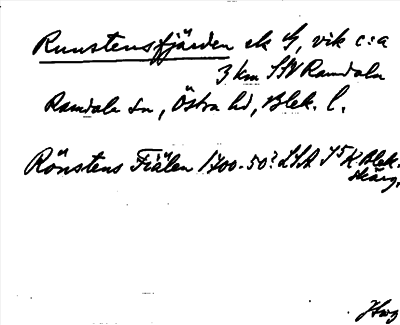 Runstensfjärden ek G, vik c:a
3 km SSV Ramdala
Ramdala sn, Östra hd, Blek. l.
Rönstens Fiälen 1700-50? LSA K Blek.
skärg.